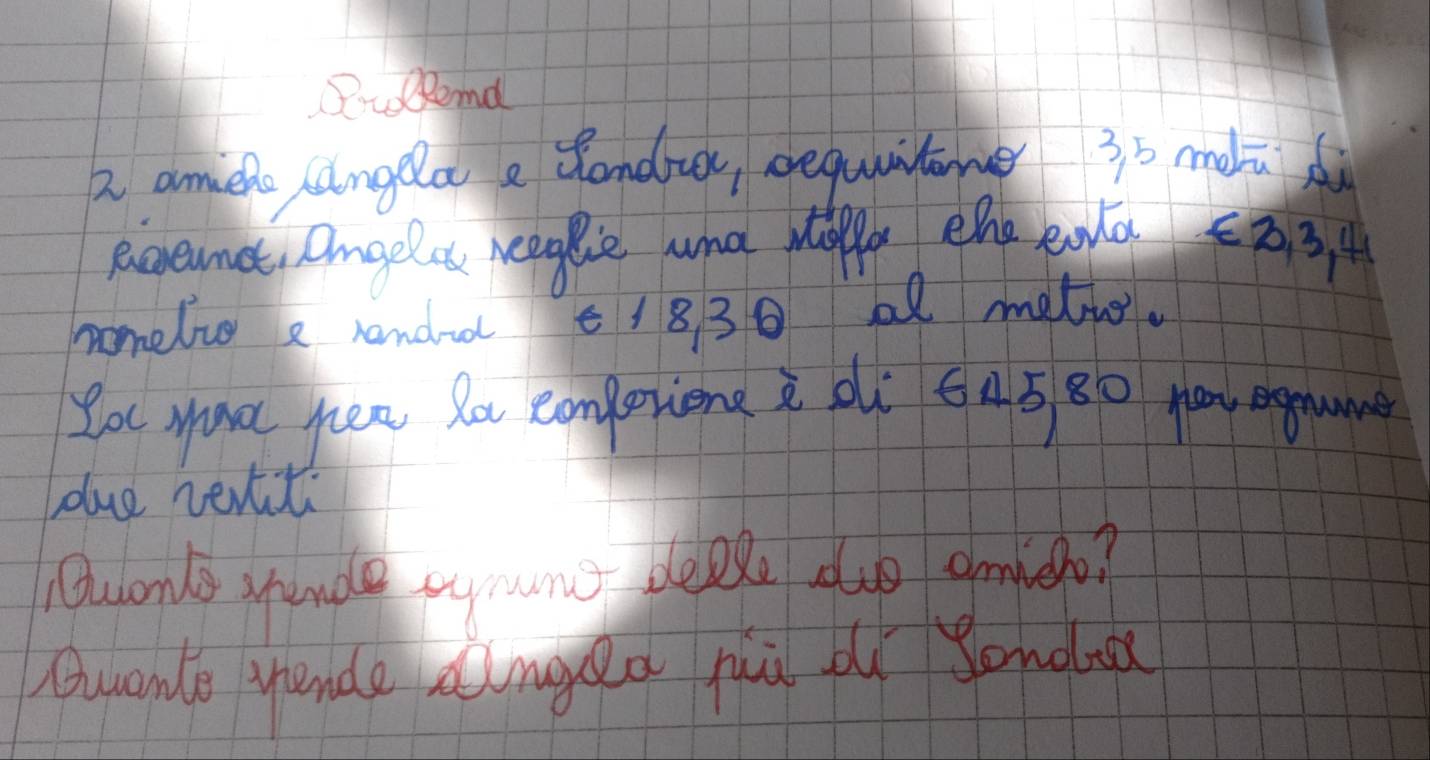 Problema
2 amiche, Angela e Sandra, acquistano 3,5 metri di
ciascuna. Angela sceglie una stoffa che costa € 23,4
metro e sandra € 18,30 al metro.
La spesa per la confezione è di € 45,80 per ognuno
due vestiti
Quanto spende ognuno delle due amiche?
Quanto spende Angela più di Sandra